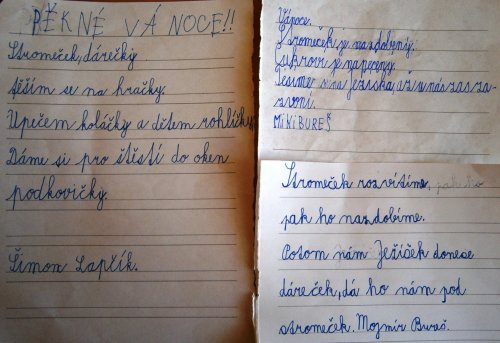 PĚKNÉ VÁ NOCE!!
Stromeček, dárečky.
těším se na hračky.
Upečem koláčky a dětem rohlíčky.
Dáme si pro štěstí do oken
podkovičky.
Šimon Lapčík.
Vánoce.
Stromeček je nazdobený.
Cukroví je napečený.
Tesíme se na ježíška, až u nás zaza-
zvoní.
MiKi BUREŠ
Stromeček rozsvítíme, jak ho
jak ho nazdobíme.
Potom nám Ježíšek donese
dáreček, dá ho nám pod
stromeček. Mojmír Bureš.